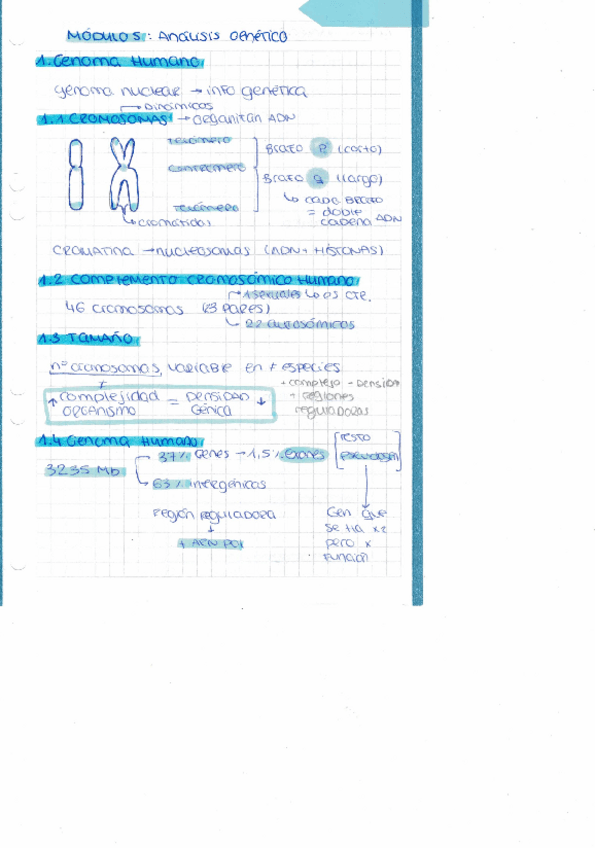 MÓDULO 5: Análisis Genético
1. Genoma Humano
genoma nuclear → info genética
→ Dinámicos
1.1 CROMOSOMAS → Organizan ADN
Telómero
Centrómero
Telómero
BRAZO P (corto)
BRAZO q (largo)
↳ CADA BRAZO
= doble
cadena ADN
↳ cromátidas
CROMATINA → nucleosomas (ADN + HISTONAS)
1.2 Complemento cromosómico Humano
→ 1 sexuales ↳ es CTE.
46 cromosomas (23 PARES)
↳ 22 autosómicos
1.3 TAMAÑO
nº cromosomas, variable en ≠ especies
↑ complejidad = DENSIDAD ↓
ORGANISMO Génica
+ complejo - DENSIDAD
+ REGIONES
reguladoras
1.4 Genoma Humano
3235 Mb
37% Genes → 1,5% Exones
63% intergénicas
[RESTO
PSEUDOGEN]
región reguladora
↓
+ ARN Pol
Gen que
se x2
pero x
función